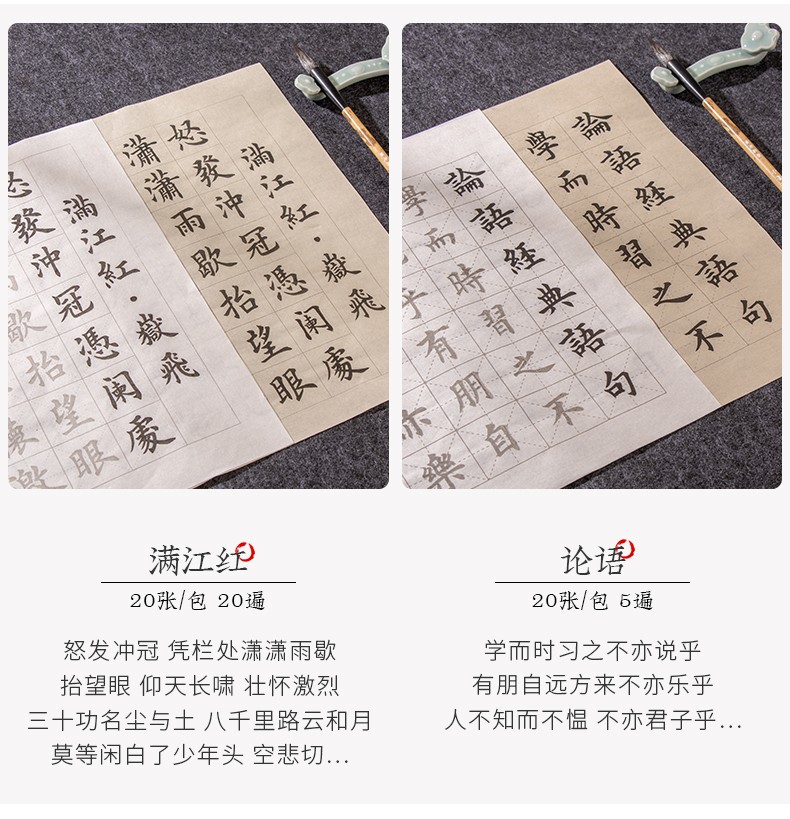 滿江紅·嶽飛
怒發沖冠憑闌處
瀟瀟雨歇抬望眼
滿江紅·嶽飛
怒發沖冠憑闌處
歇抬望眼
論語經典語句
學而時習之不
論語經典語句
學而時習之不
乎有朋自
亦樂
满江红
20张/包 20遍
怒发冲冠 凭栏处潇潇雨歇
抬望眼 仰天长啸 壮怀激烈
三十功名尘与土 八千里路云和月
莫等闲白了少年头 空悲切...
论语
20张/包 5遍
学而时习之不亦说乎
有朋自远方来不亦乐乎
人不知而不愠 不亦君子乎...